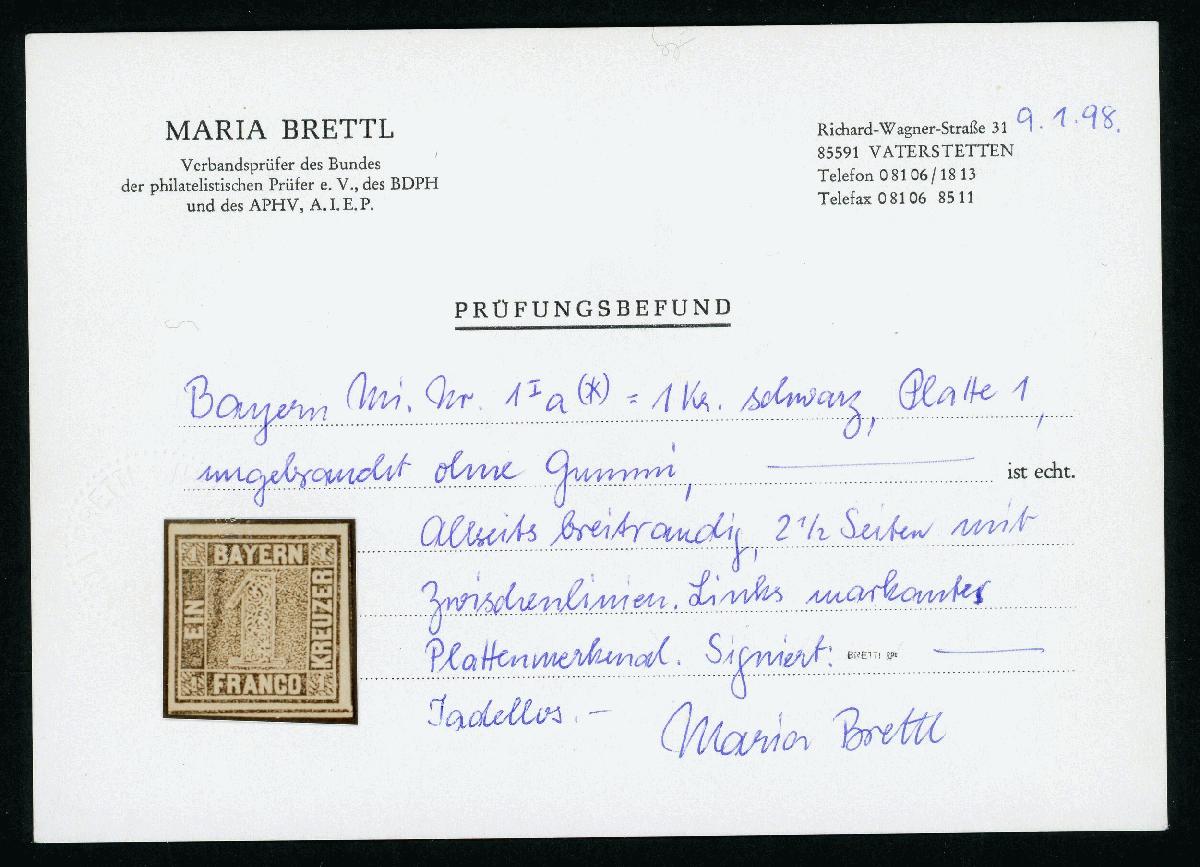 MARIA BRETTL
Verbandsprüfer des Bundes
der philatelistischen Prüfer e. V., des BDPH
und des APHV, A. I. E. P.
Richard-Wagner-Straße 31 9. 1. 98.
85591 VATERSTETTEN
Telefon 08106/1813
Telefax 08106 8511
PRÜFUNGSBEFUND
Bayern Mi. Nr. 1 I a (*) = 1 Kr. schwarz, Platte 1,
ungebraucht ohne Gummi, ist echt.
Allseits breitrandig, 2 1/2 Seiten mit
Zwischenlinien. Links markantes
Plattenmerkmal. Signiert: BRETTL
Tadellos. –
Maria Brettl
BAYERN
EIN
1
KREUZER
FRANCO